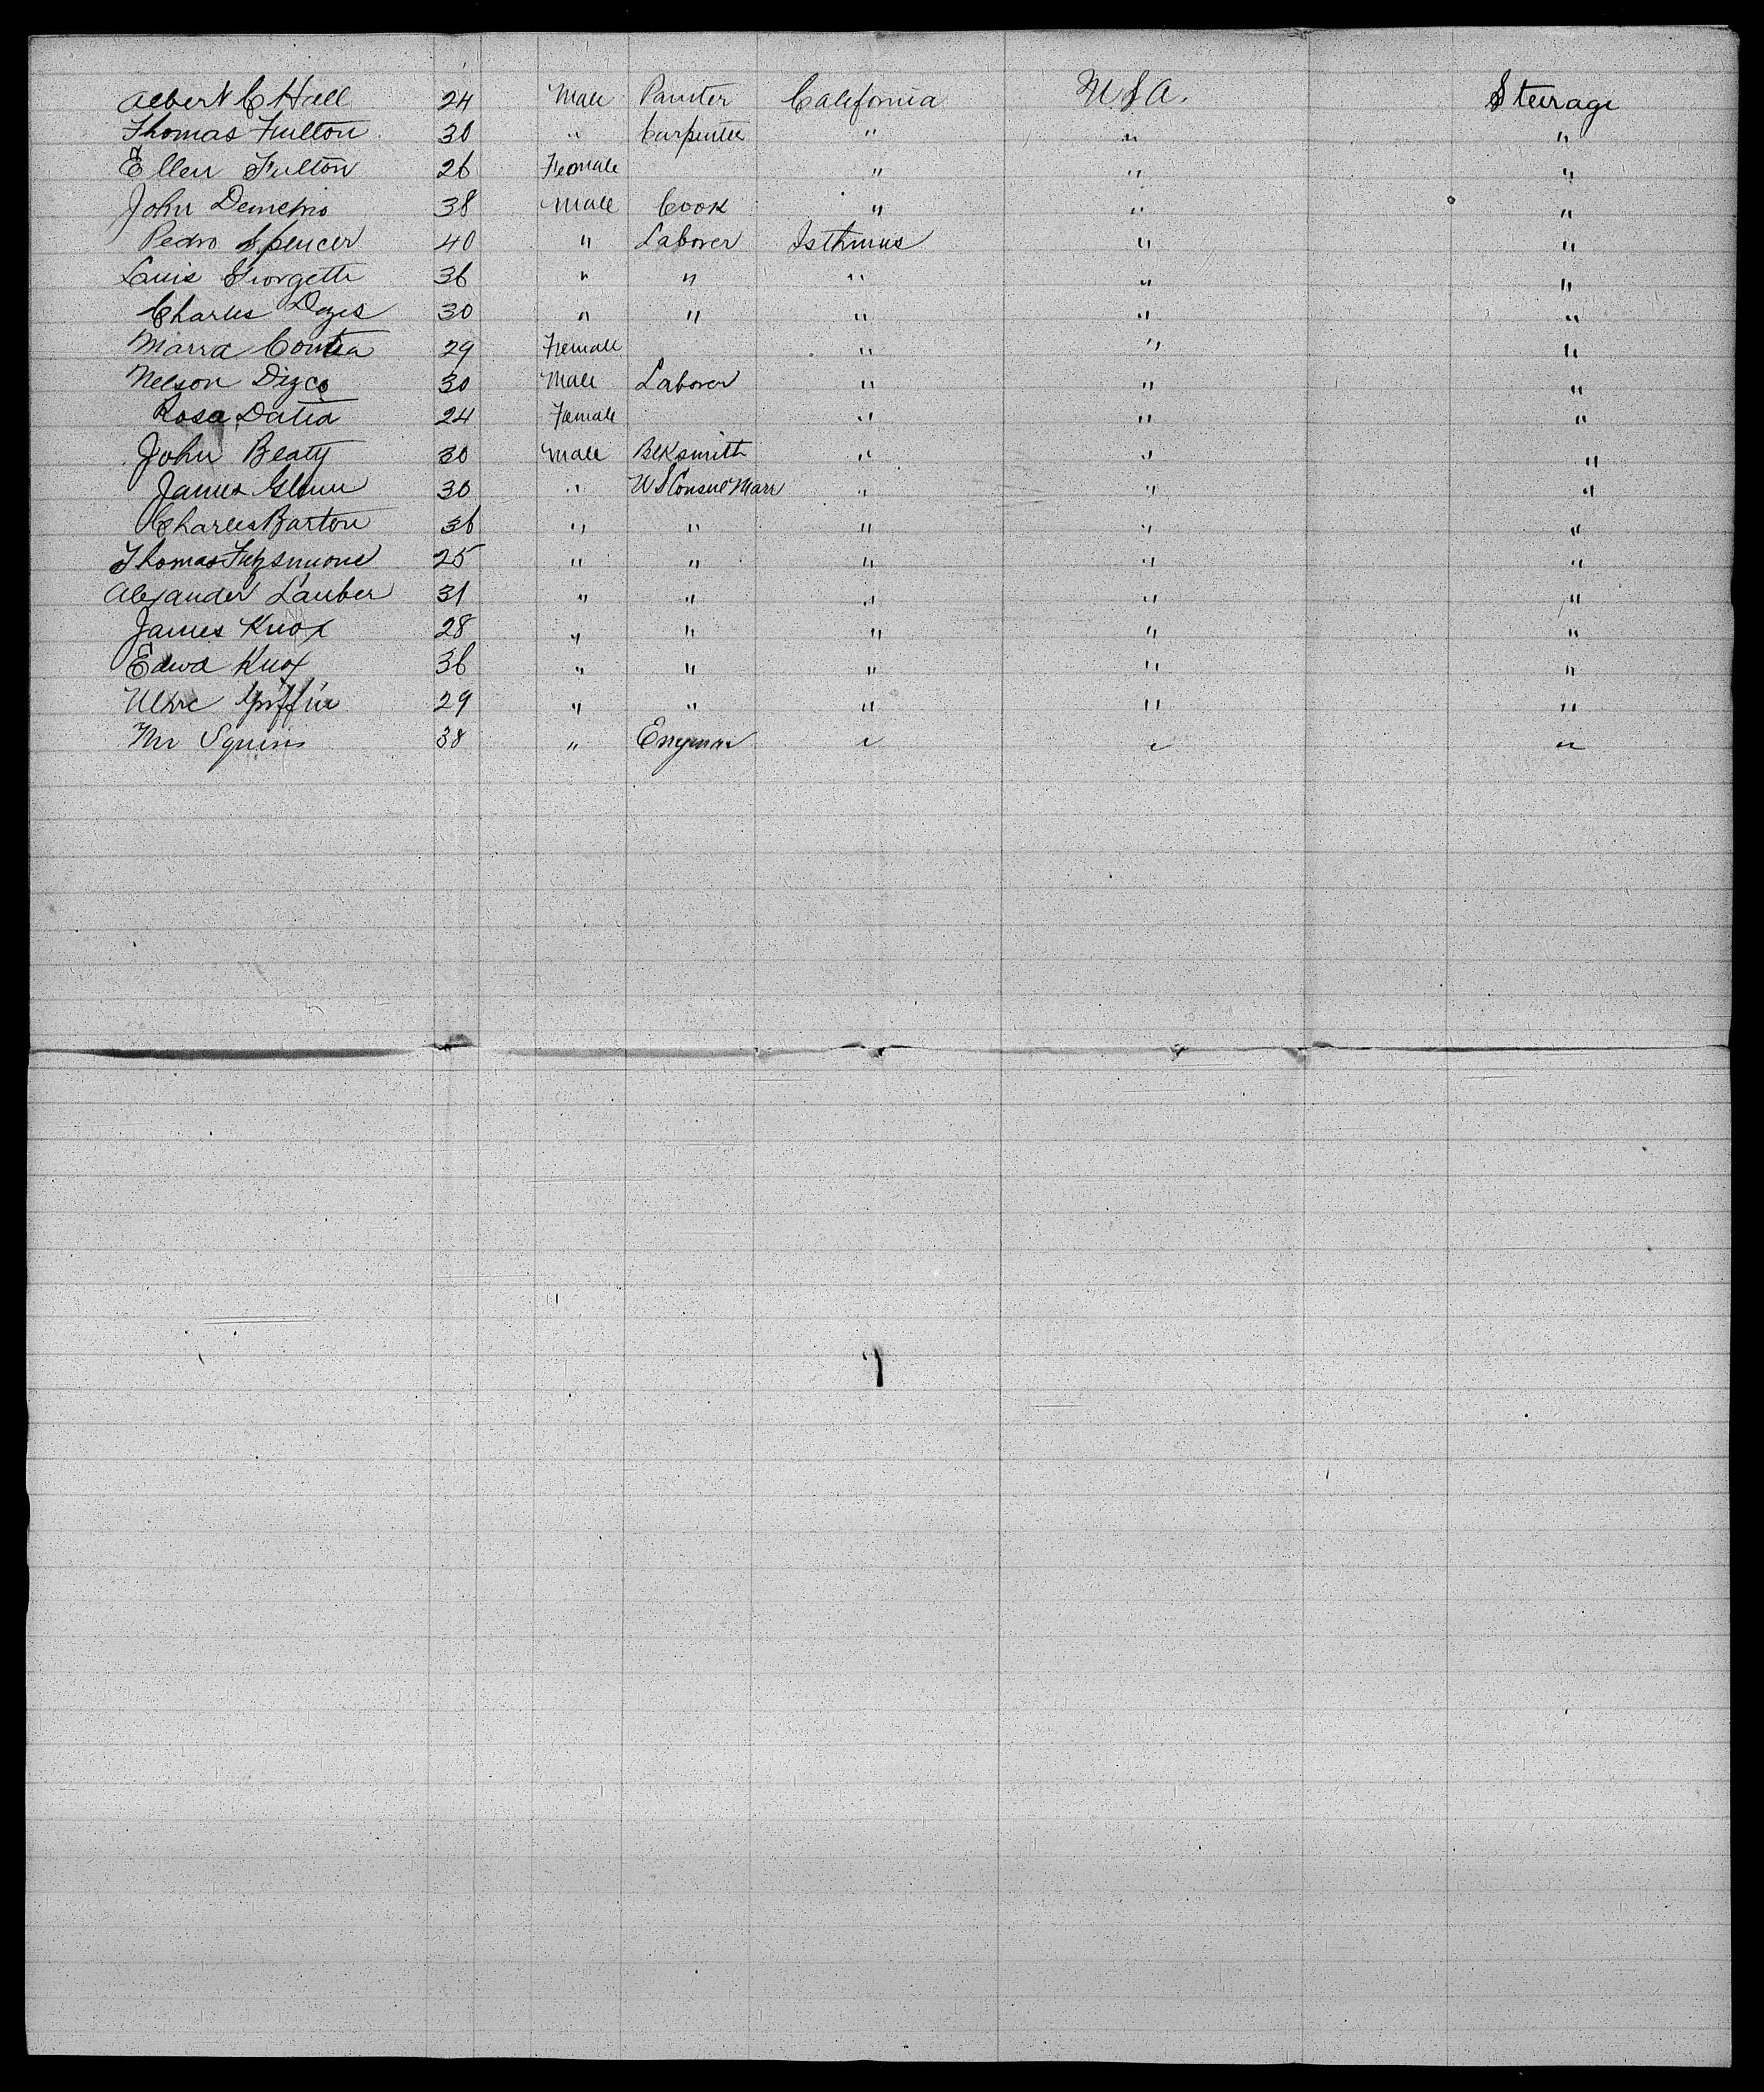 Albert C Hall 24 Male Painter California U S A. Steerage
Thomas Fulton 30 " Carpenter " " "
Ellen Fulton 26 Female " " "
John Demetrio 38 Male Cook " " "
Pedro Spencer 40 " Laborer Isthmus " "
Louis Georgette 36 " " " " "
Charles 30 " " " " "
Marra 29 Female " " "
Nelson 30 Male Laborer " " "
Rosa Datia 24 Female " " "
John Beaty 30 Male Blksmith " " "
James Glenn 30 " U S Consul Marr " " "
Charles Barton 36 " " " " "
Thomas Fitzsimons 25 " " " " "
Alexander Lauber 31 " " " " "
James Knox 28 " " " " "
Edwd Knox 36 " " " " "
Griffin 29 " " " " "
Mr Squires 38 " " " "